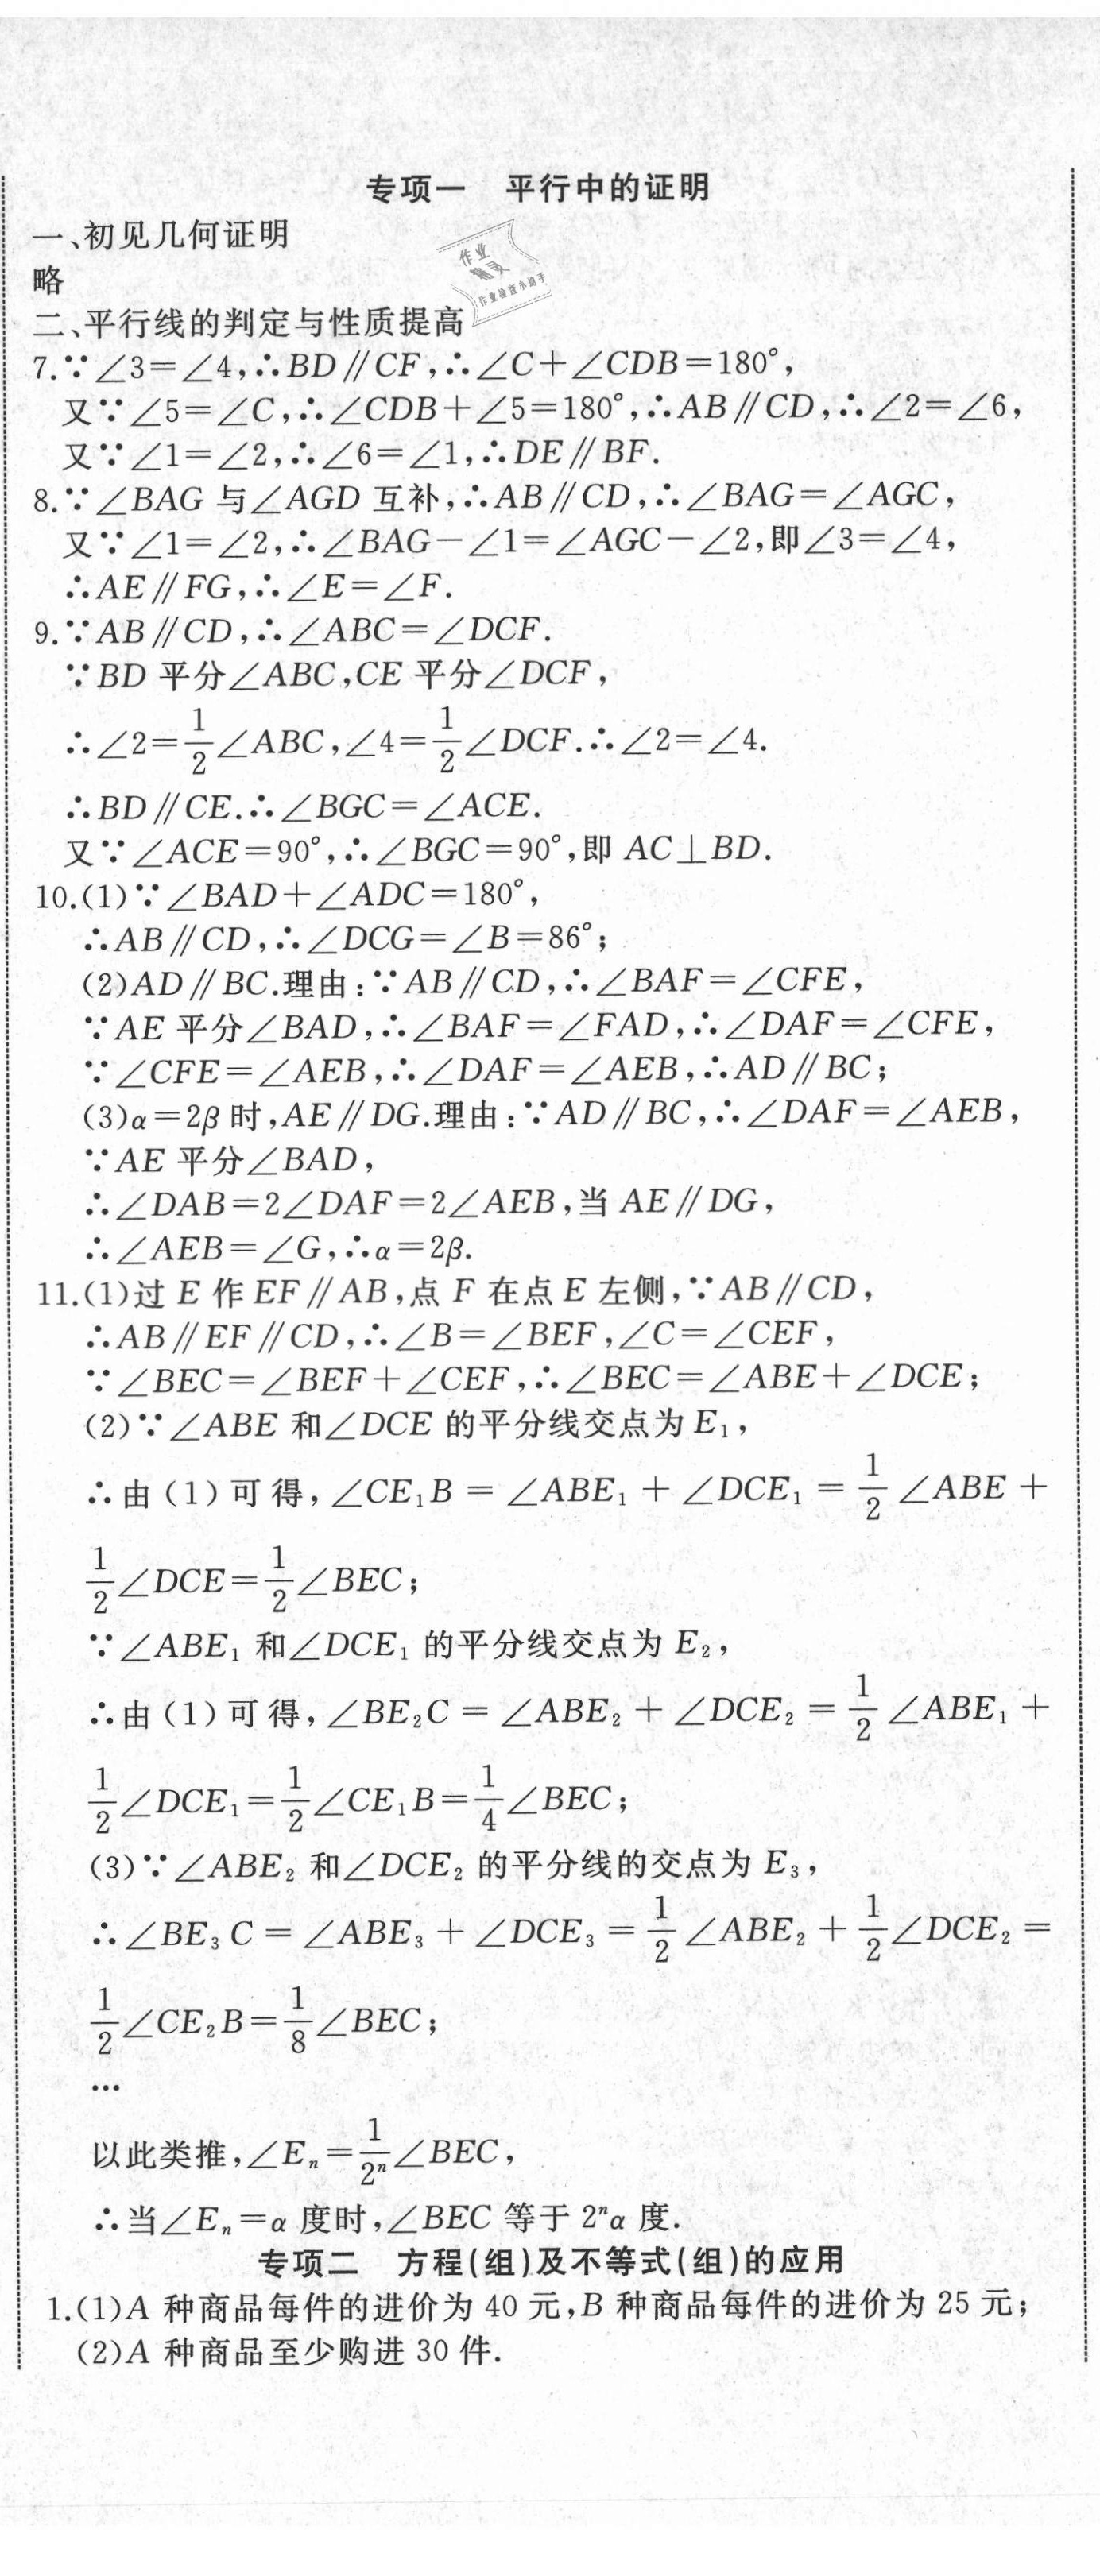 专项一 平行中的证明
一、初见几何证明
作业
作业检查小助手
略
二、平行线的判定与性质提高
7.∵∠3=∠4,∴BD∥CF,∴∠C+∠CDB=180°,
又∵∠5=∠C,∴∠CDB+∠5=180°,∴AB∥CD,∴∠2=∠6,
又∵∠1=∠2,∴∠6=∠1,∴DE∥BF.
8.∵∠BAG 与∠AGD 互补,∴AB∥CD,∴∠BAG=∠AGC,
又∵∠1=∠2,∴∠BAG-∠1=∠AGC-∠2,即∠3=∠4,
∴AE∥FG,∴∠E=∠F.
9.∵AB∥CD,∴∠ABC=∠DCF.
∵BD 平分∠ABC,CE 平分∠DCF,
∴∠2=1/2∠ABC,∠4=1/2∠DCF.∴∠2=∠4.
∴BD∥CE.∴∠BGC=∠ACE.
又∵∠ACE=90°,∴∠BGC=90°,即 AC⊥BD.
10.(1)∵∠BAD+∠ADC=180°,
∴AB∥CD,∴∠DCG=∠B=86°;
(2)AD∥BC.理由:∵AB∥CD,∴∠BAF=∠CFE,
∵AE 平分∠BAD,∴∠BAF=∠FAD,∴∠DAF=∠CFE,
∵∠CFE=∠AEB,∴∠DAF=∠AEB,∴AD∥BC;
(3)α=2β 时,AE∥DG.理由:∵AD∥BC,∴∠DAF=∠AEB,
∵AE 平分∠BAD,
∴∠DAB=2∠DAF=2∠AEB,当 AE∥DG,
∴∠AEB=∠G,∴α=2β.
11.(1)过 E 作 EF∥AB,点 F 在点 E 左侧,∵AB∥CD,
∴AB∥EF∥CD,∴∠B=∠BEF,∠C=∠CEF,
∵∠BEC=∠BEF+∠CEF,∴∠BEC=∠ABE+∠DCE;
(2)∵∠ABE 和∠DCE 的平分线交点为 E₁,
∴由(1)可得,∠CE₁B=∠ABE₁+∠DCE₁=1/2∠ABE+
1/2∠DCE=1/2∠BEC;
∵∠ABE₁ 和∠DCE₁ 的平分线交点为 E₂,
∴由(1)可得,∠BE₂C=∠ABE₂+∠DCE₂=1/2∠ABE₁+
1/2∠DCE₁=1/2∠CE₁B=1/4∠BEC;
(3)∵∠ABE₂ 和∠DCE₂ 的平分线的交点为 E₃,
∴∠BE₃C=∠ABE₃+∠DCE₃=1/2∠ABE₂+1/2∠DCE₂=
1/2∠CE₂B=1/8∠BEC;
…
以此类推,∠Eₙ=1/2ⁿ∠BEC,
∴当∠Eₙ=α 度时,∠BEC 等于 2ⁿα 度.
专项二 方程(组)及不等式(组)的应用
1.(1)A 种商品每件的进价为 40 元,B 种商品每件的进价为 25 元;
(2)A 种商品至少购进 30 件.